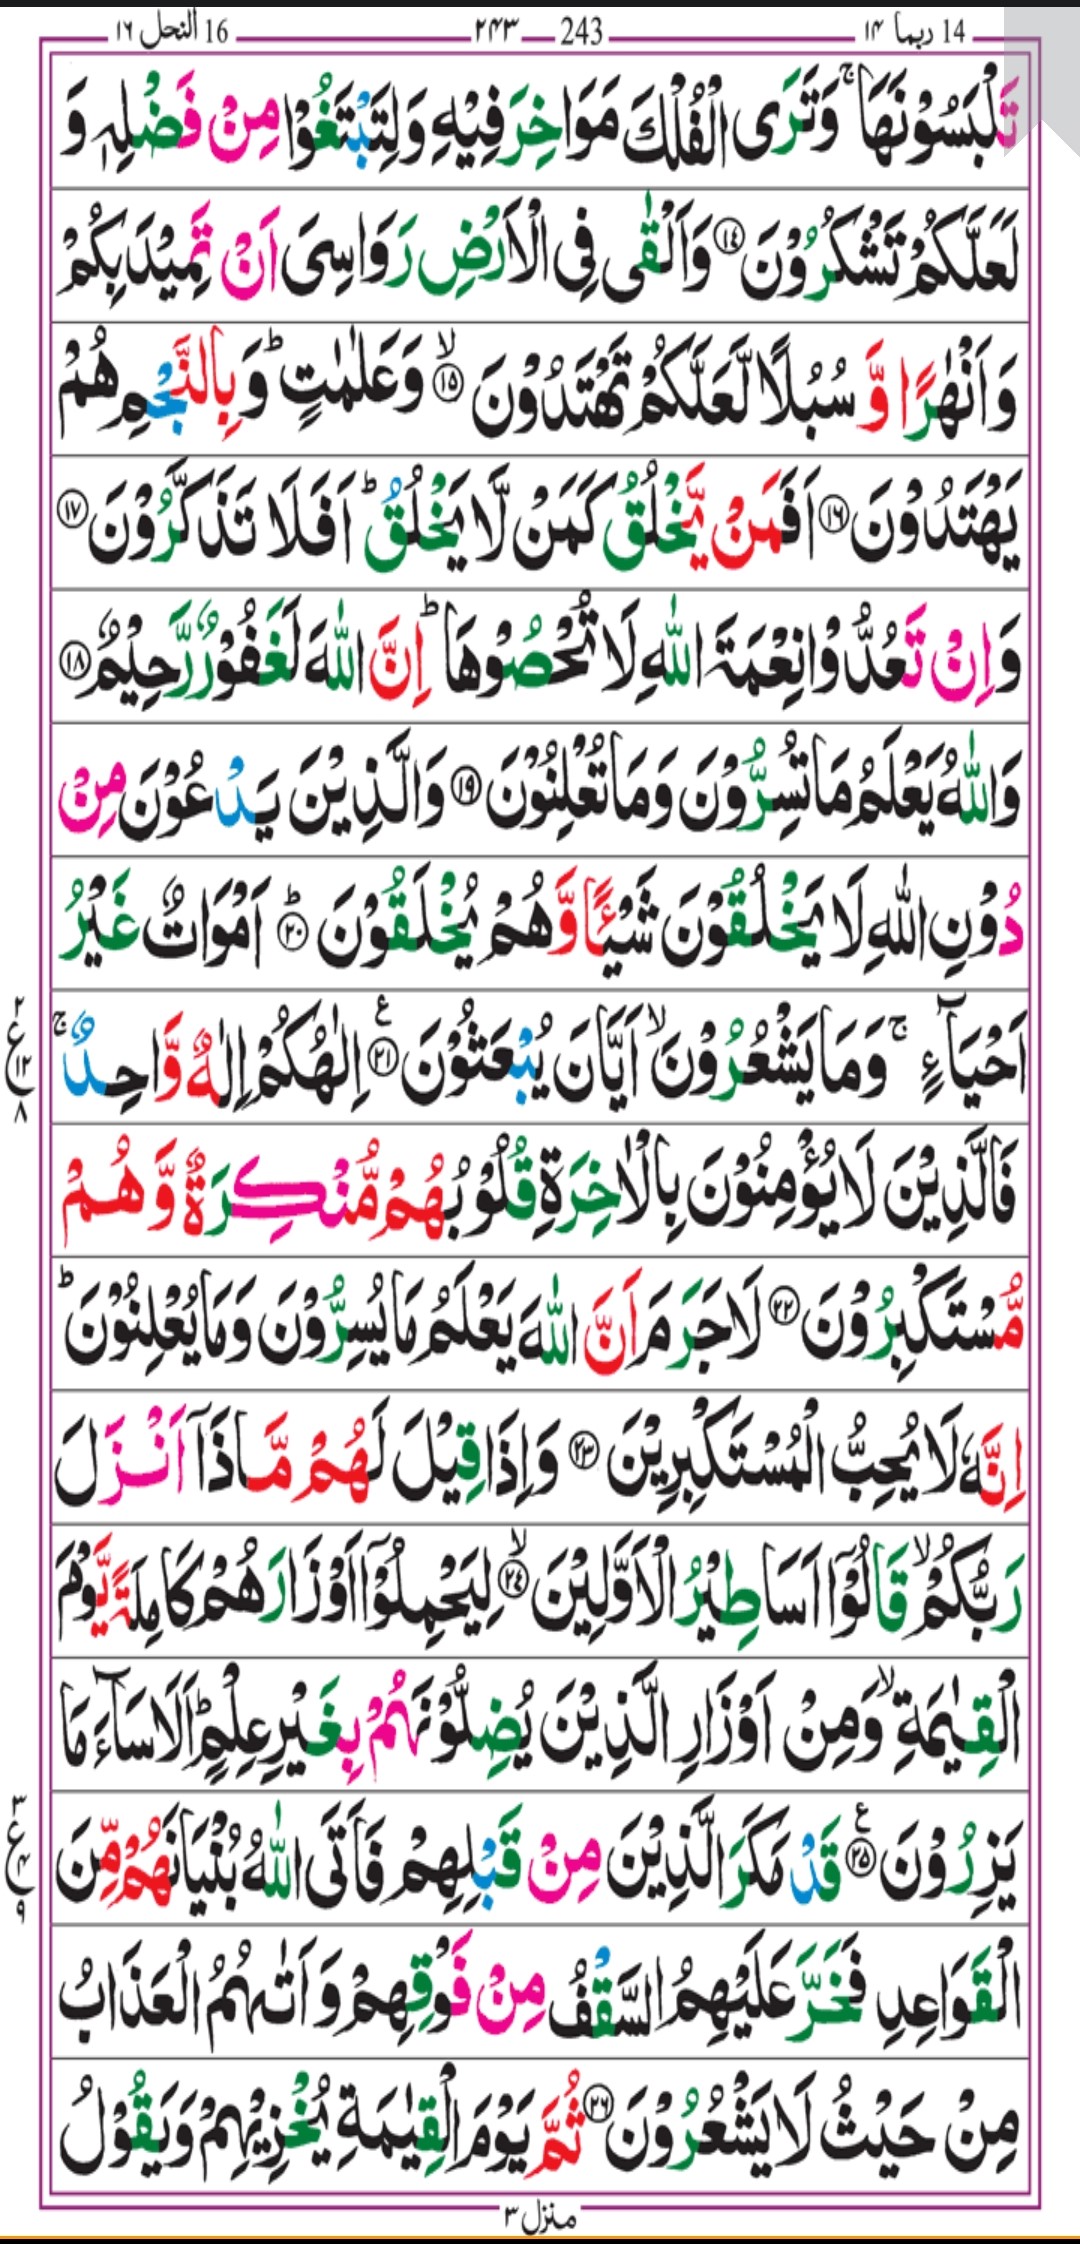 14 ربما ۱۴ 243 ۲۴۳ 16 النحل ۱۶
تَلْبَسُوْنَهَا ۚ وَتَرَى الْفُلْكَ مَوَاخِرَ فِيْهِ وَلِتَبْتَغُوْا مِنْ فَضْلِهٖ وَ
لَعَلَّكُمْ تَشْكُرُوْنَ ۝۱٤ وَاَلْقٰى فِى الْاَرْضِ رَوَاسِىَ اَنْ تَمِيْدَ بِكُمْ
وَاَنْهٰرًا وَّ سُبُلًا لَّعَلَّكُمْ تَهْتَدُوْنَ ۝۱۵ۙ وَعَلٰمٰتٍ ؕ وَ بِالنَّجْمِ هُمْ
يَهْتَدُوْنَ ۝۱۶ اَفَمَنْ يَّخْلُقُ كَمَنْ لَّا يَخْلُقُ ؕ اَفَلَا تَذَكَّرُوْنَ ۝۱۷
وَاِنْ تَعُدُّوْا نِعْمَةَ اللّٰهِ لَا تُحْصُوْهَا ؕ اِنَّ اللّٰهَ لَغَفُوْرٌ رَّحِيْمٌ ۝۱۸
وَاللّٰهُ يَعْلَمُ مَا تُسِرُّوْنَ وَمَا تُعْلِنُوْنَ ۝۱۹ وَالَّذِيْنَ يَدْعُوْنَ مِنْ
دُوْنِ اللّٰهِ لَا يَخْلُقُوْنَ شَيْـًٔا وَّهُمْ يُخْلَقُوْنَ ۝۲۰ؕ اَمْوَاتٌ غَيْرُ
اَحْيَآءٍ ۚ وَمَا يَشْعُرُوْنَ ۙ اَيَّانَ يُبْعَثُوْنَ ۝۲۱ع اِلٰهُكُمْ اِلٰهٌ وَّاحِدٌ ۚ
۲ ع ۱۲ ۸
فَالَّذِيْنَ لَا يُؤْمِنُوْنَ بِالْاٰخِرَةِ قُلُوْبُهُمْ مُّنْكِرَةٌ وَّهُمْ
مُّسْتَكْبِرُوْنَ ۝۲۲ لَا جَرَمَ اَنَّ اللّٰهَ يَعْلَمُ مَا يُسِرُّوْنَ وَمَا يُعْلِنُوْنَ ؕ
اِنَّهٗ لَا يُحِبُّ الْمُسْتَكْبِرِيْنَ ۝۲۳ وَاِذَا قِيْلَ لَهُمْ مَّاذَاۤ اَنْزَلَ
رَبُّكُمْ ۙ قَالُوْۤا اَسَاطِيْرُ الْاَوَّلِيْنَ ۝۲٤ۙ لِيَحْمِلُوْۤا اَوْزَارَهُمْ كَامِلَةً يَّوْمَ
الْقِيٰمَةِ ۙ وَمِنْ اَوْزَارِ الَّذِيْنَ يُضِلُّوْنَهُمْ بِغَيْرِ عِلْمٍ ؕ اَلَا سَآءَ مَا
يَزِرُوْنَ ۝۲۵ع قَدْ مَكَرَ الَّذِيْنَ مِنْ قَبْلِهِمْ فَاَتَى اللّٰهُ بُنْيَانَهُمْ مِّنَ
۳ ع ۴ ۹
الْقَوَاعِدِ فَخَرَّ عَلَيْهِمُ السَّقْفُ مِنْ فَوْقِهِمْ وَاَتٰىهُمُ الْعَذَابُ
مِنْ حَيْثُ لَا يَشْعُرُوْنَ ۝۲۶ ثُمَّ يَوْمَ الْقِيٰمَةِ يُخْزِيْهِمْ وَيَقُوْلُ
منزل ۳